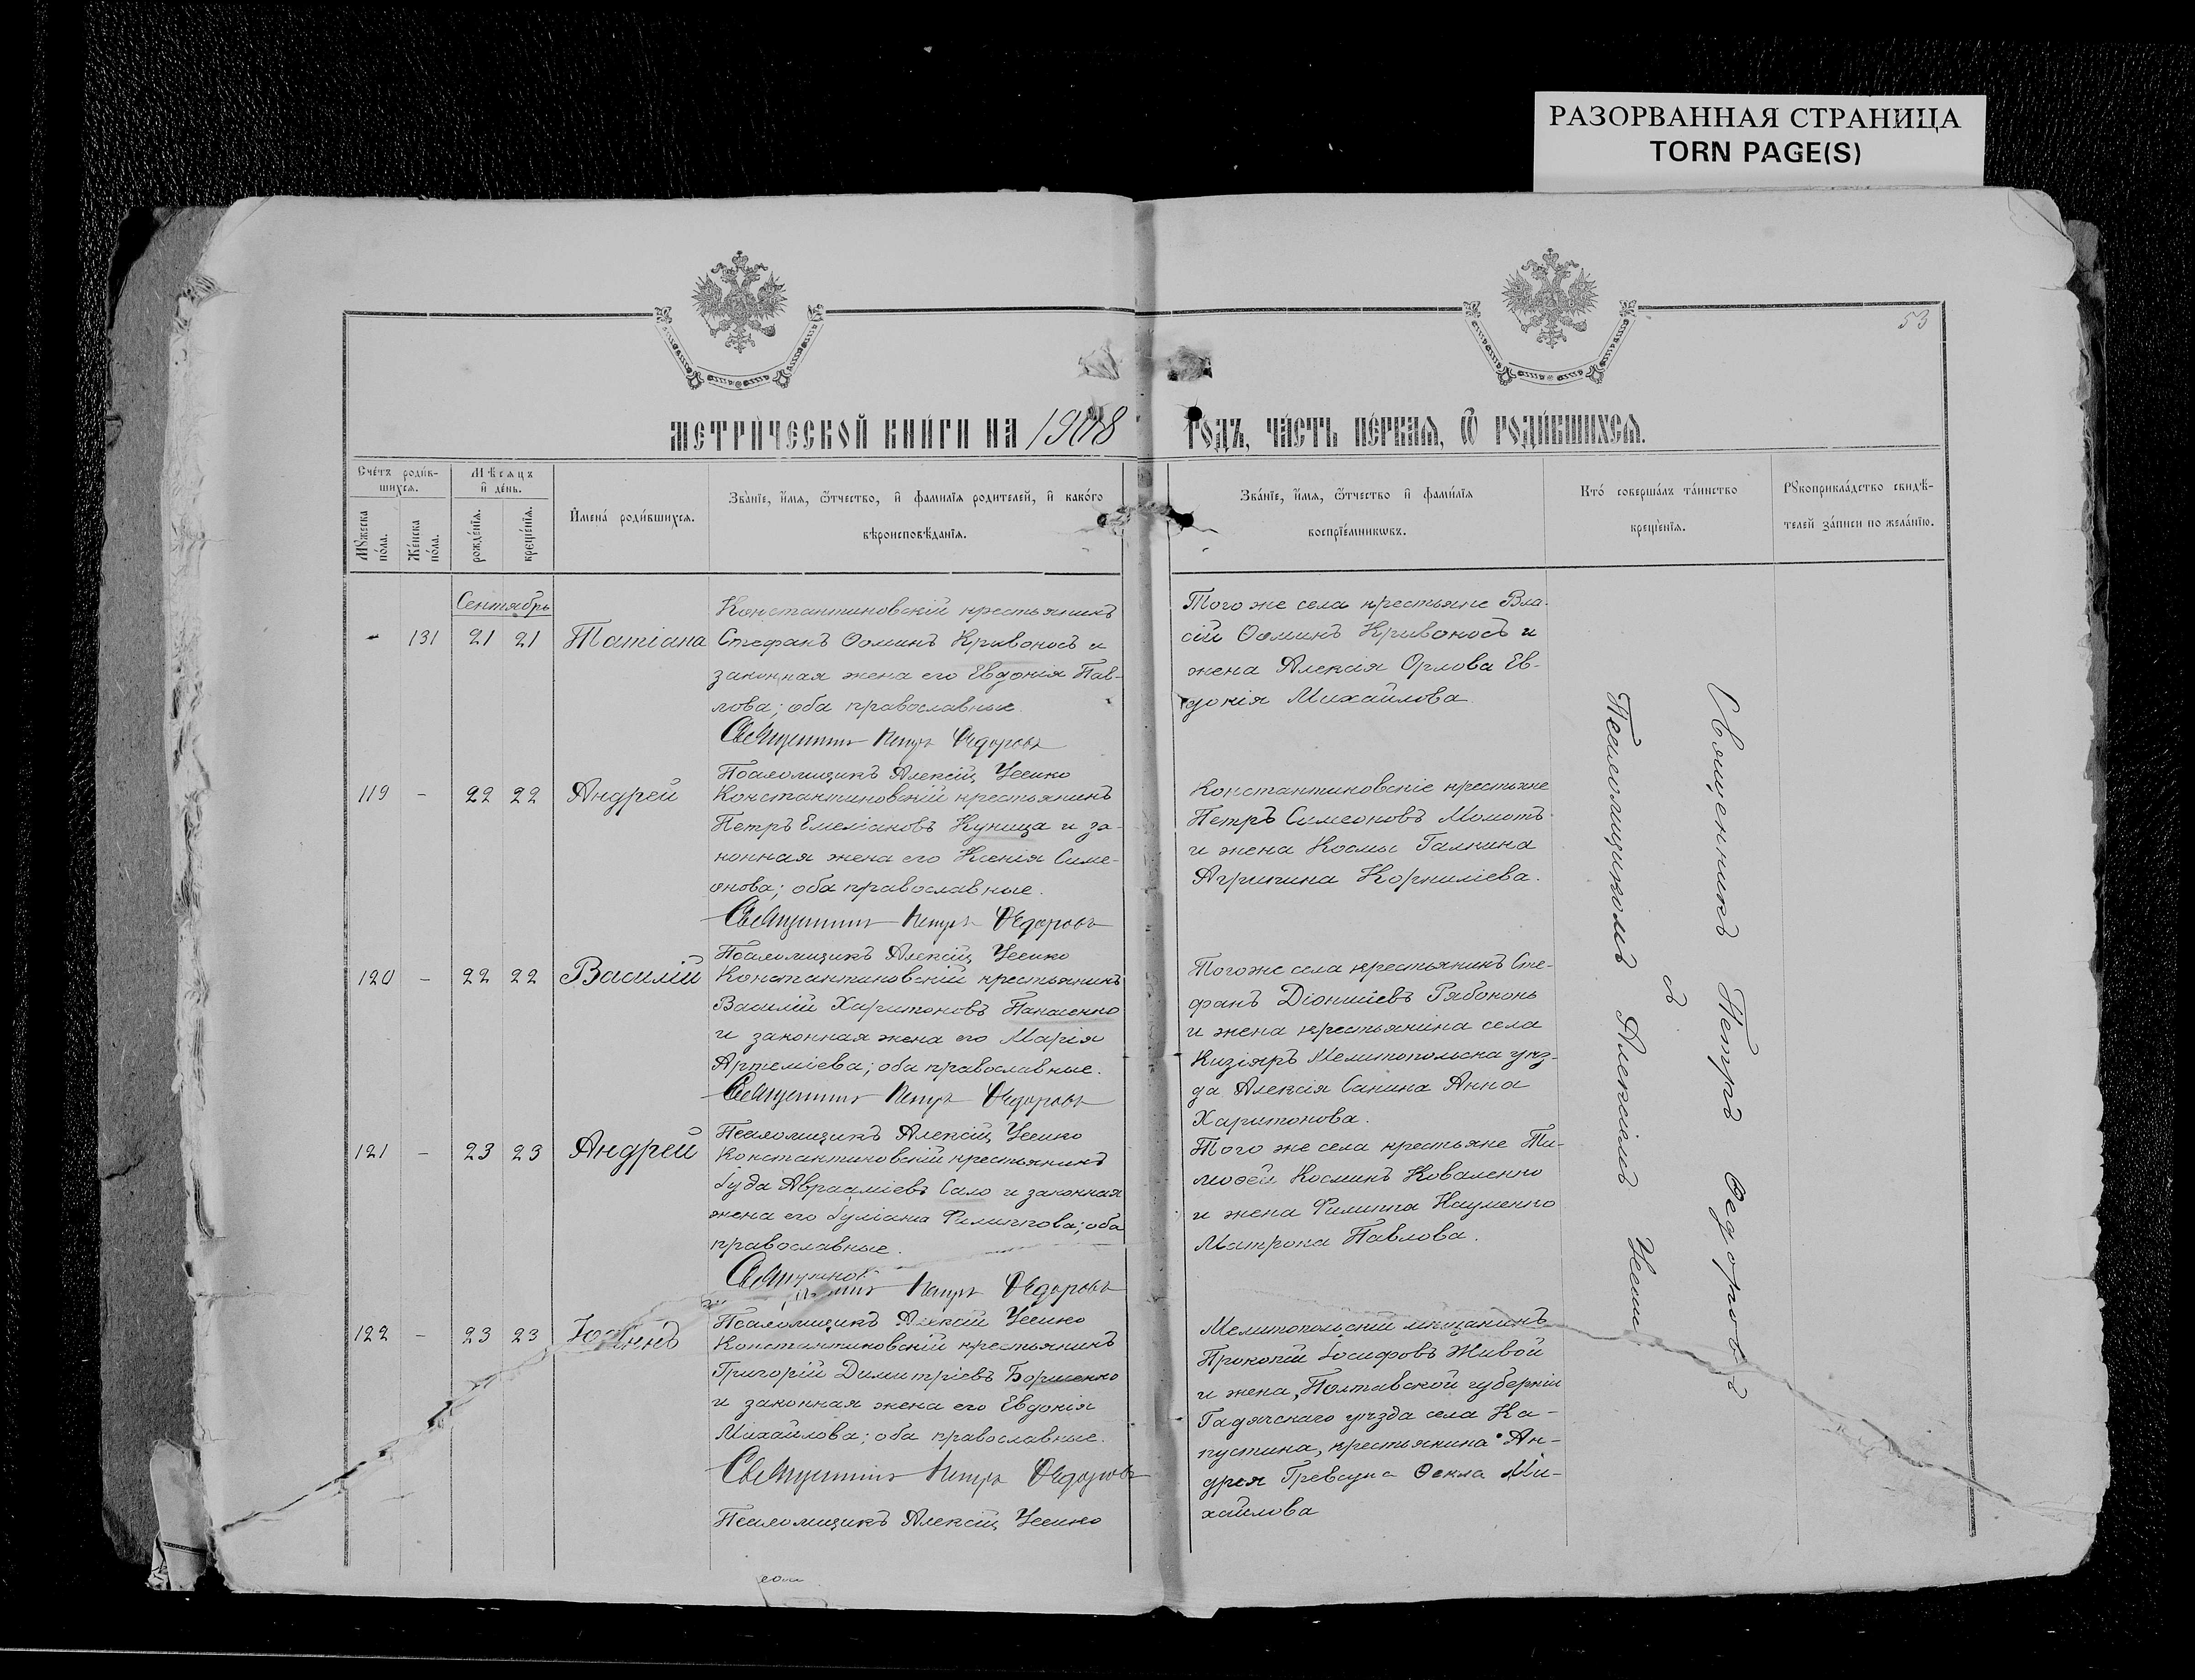 РАЗОРВАННАЯ СТРАНИЦА
TORN PAGE(S)
53
МЕТРИ́ЧЕСКОЙ КНИ́ГИ НА 1908 ГОДЪ, ЧА́СТЬ ПЕ́РВАѦ, Ѽ РОДИ́ВШИХСѦ.
Сче́тъ роди́в-
шихсѧ.
Мꙋ́жеска по́ла.
Же́нска по́ла.
Мѣ́сѧцъ
и҆ де́нь.
рожде́нїѧ.
креще́нїѧ.
И҆мена̀ роди́вшихсѧ.
Зва́нїе, и҆́мѧ, ѻ҆́тчество, и҆ фамилїѧ родителей, и҆ како́го
вѣроисповѣ́данїѧ.
Зва́нїе, и҆́мѧ, ѻ҆́тчество и҆ фами́лїѧ
воспрїе́мникѡвъ.
Кто̀ соверша́лъ та́инство
креще́нїѧ.
Рꙋкоприкла́дство свидѣ́-
телей за́писи по жела́нїю.
Сентябрь
- 131 21 21 Татіана
Константиновскій крестьянинъ
Стефанъ Ѳоминъ Кривоносъ и
законная жена его Евдокія Пав-
лова; оба православные.
Священникъ Петръ Ѳедоровъ
Псаломщикъ Алексій Усенко
Того же села крестьяне Вла-
сій Ѳоминъ Кривоносъ и
жена Алексія Орлова Ев-
докія Михайлова
119 - 22 22 Андрей
Константиновскій крестьянинъ
Петръ Емеліановъ Куница и за-
конная жена его Ксенія Симе-
онова; оба православные.
Священникъ Петръ Ѳедоровъ
Псаломщикъ Алексій Усенко
Константиновскіе крестьяне
Петръ Симеоновъ Момотъ
и жена Космы Галкина
Агрипина Корниліева.
120 - 22 22 Василій
Константиновскій крестьянинъ
Василій Харитоновъ Панасенко
и законная жена его Марія
Артеміева; оба православные.
Священникъ Петръ Ѳедоровъ
Псаломщикъ Алексій Усенко
Того же села крестьянинъ Сте-
фанъ Діонисіевъ Рябоконь
и жена крестьянина села
Кизіяръ Мелитопольска уѣз-
да Алексія Санина Анна
Харитонова.
121 - 23 23 Андрей
Константиновскій крестьянинъ
Іуда Авраміевъ Сало и законная
жена его Іуліанія Филиппова; оба
православные.
Священникъ Петръ Ѳедоровъ
Псаломщикъ Алексій Усенко
Того же села крестьяне Ти-
моѳей Косминъ Коваленко
и жена Филиппа Науменко
Матрона Павлова.
122 - 23 23 Іоаннъ
Константиновскій крестьянинъ
Григорій Димитріевъ Борисенко
и законная жена его Евдокія
Михайлова; оба православные.
Священникъ Петръ Ѳедоровъ
Псаломщикъ Алексій Усенко
Мелитопольскій мѣщанинъ
Прокопій Іосифовъ Живой
и жена, Полтавской губерніи
Гадячскаго уѣзда села Ка-
пустина, крестьянина Ан-
дрея Ѳекла Ми-
хайлова
Священникъ Петръ Ѳедоровъ
съ
Псаломщикомъ Алексіемъ Усенко